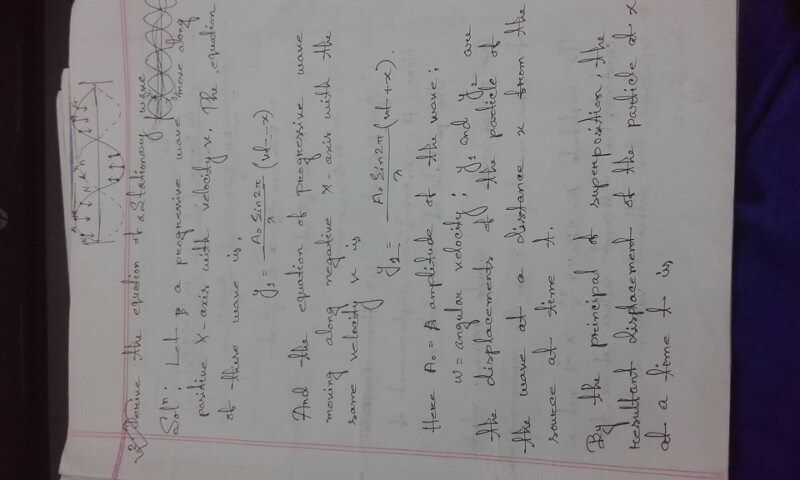 2. Derive the equation of a stationary wave
Soln: Let a progressive wave move along
positive X-axis with velocity v. The equation
of these wave is,
y1 = A0 Sin2π/λ (vt-x)
And the equation of progressive wave
moving along negative X-axis with the
same velocity v is
y2 = A0 Sin2π/λ (vt+x).
Here A0 = amplitude of the wave;
W = angular velocity; y1 and y2 are
the displacements of the particle of
the wave at a distance x from the
source at time t.
By the principal of superposition, the
resultant displacement of the particle at x
at a time t is